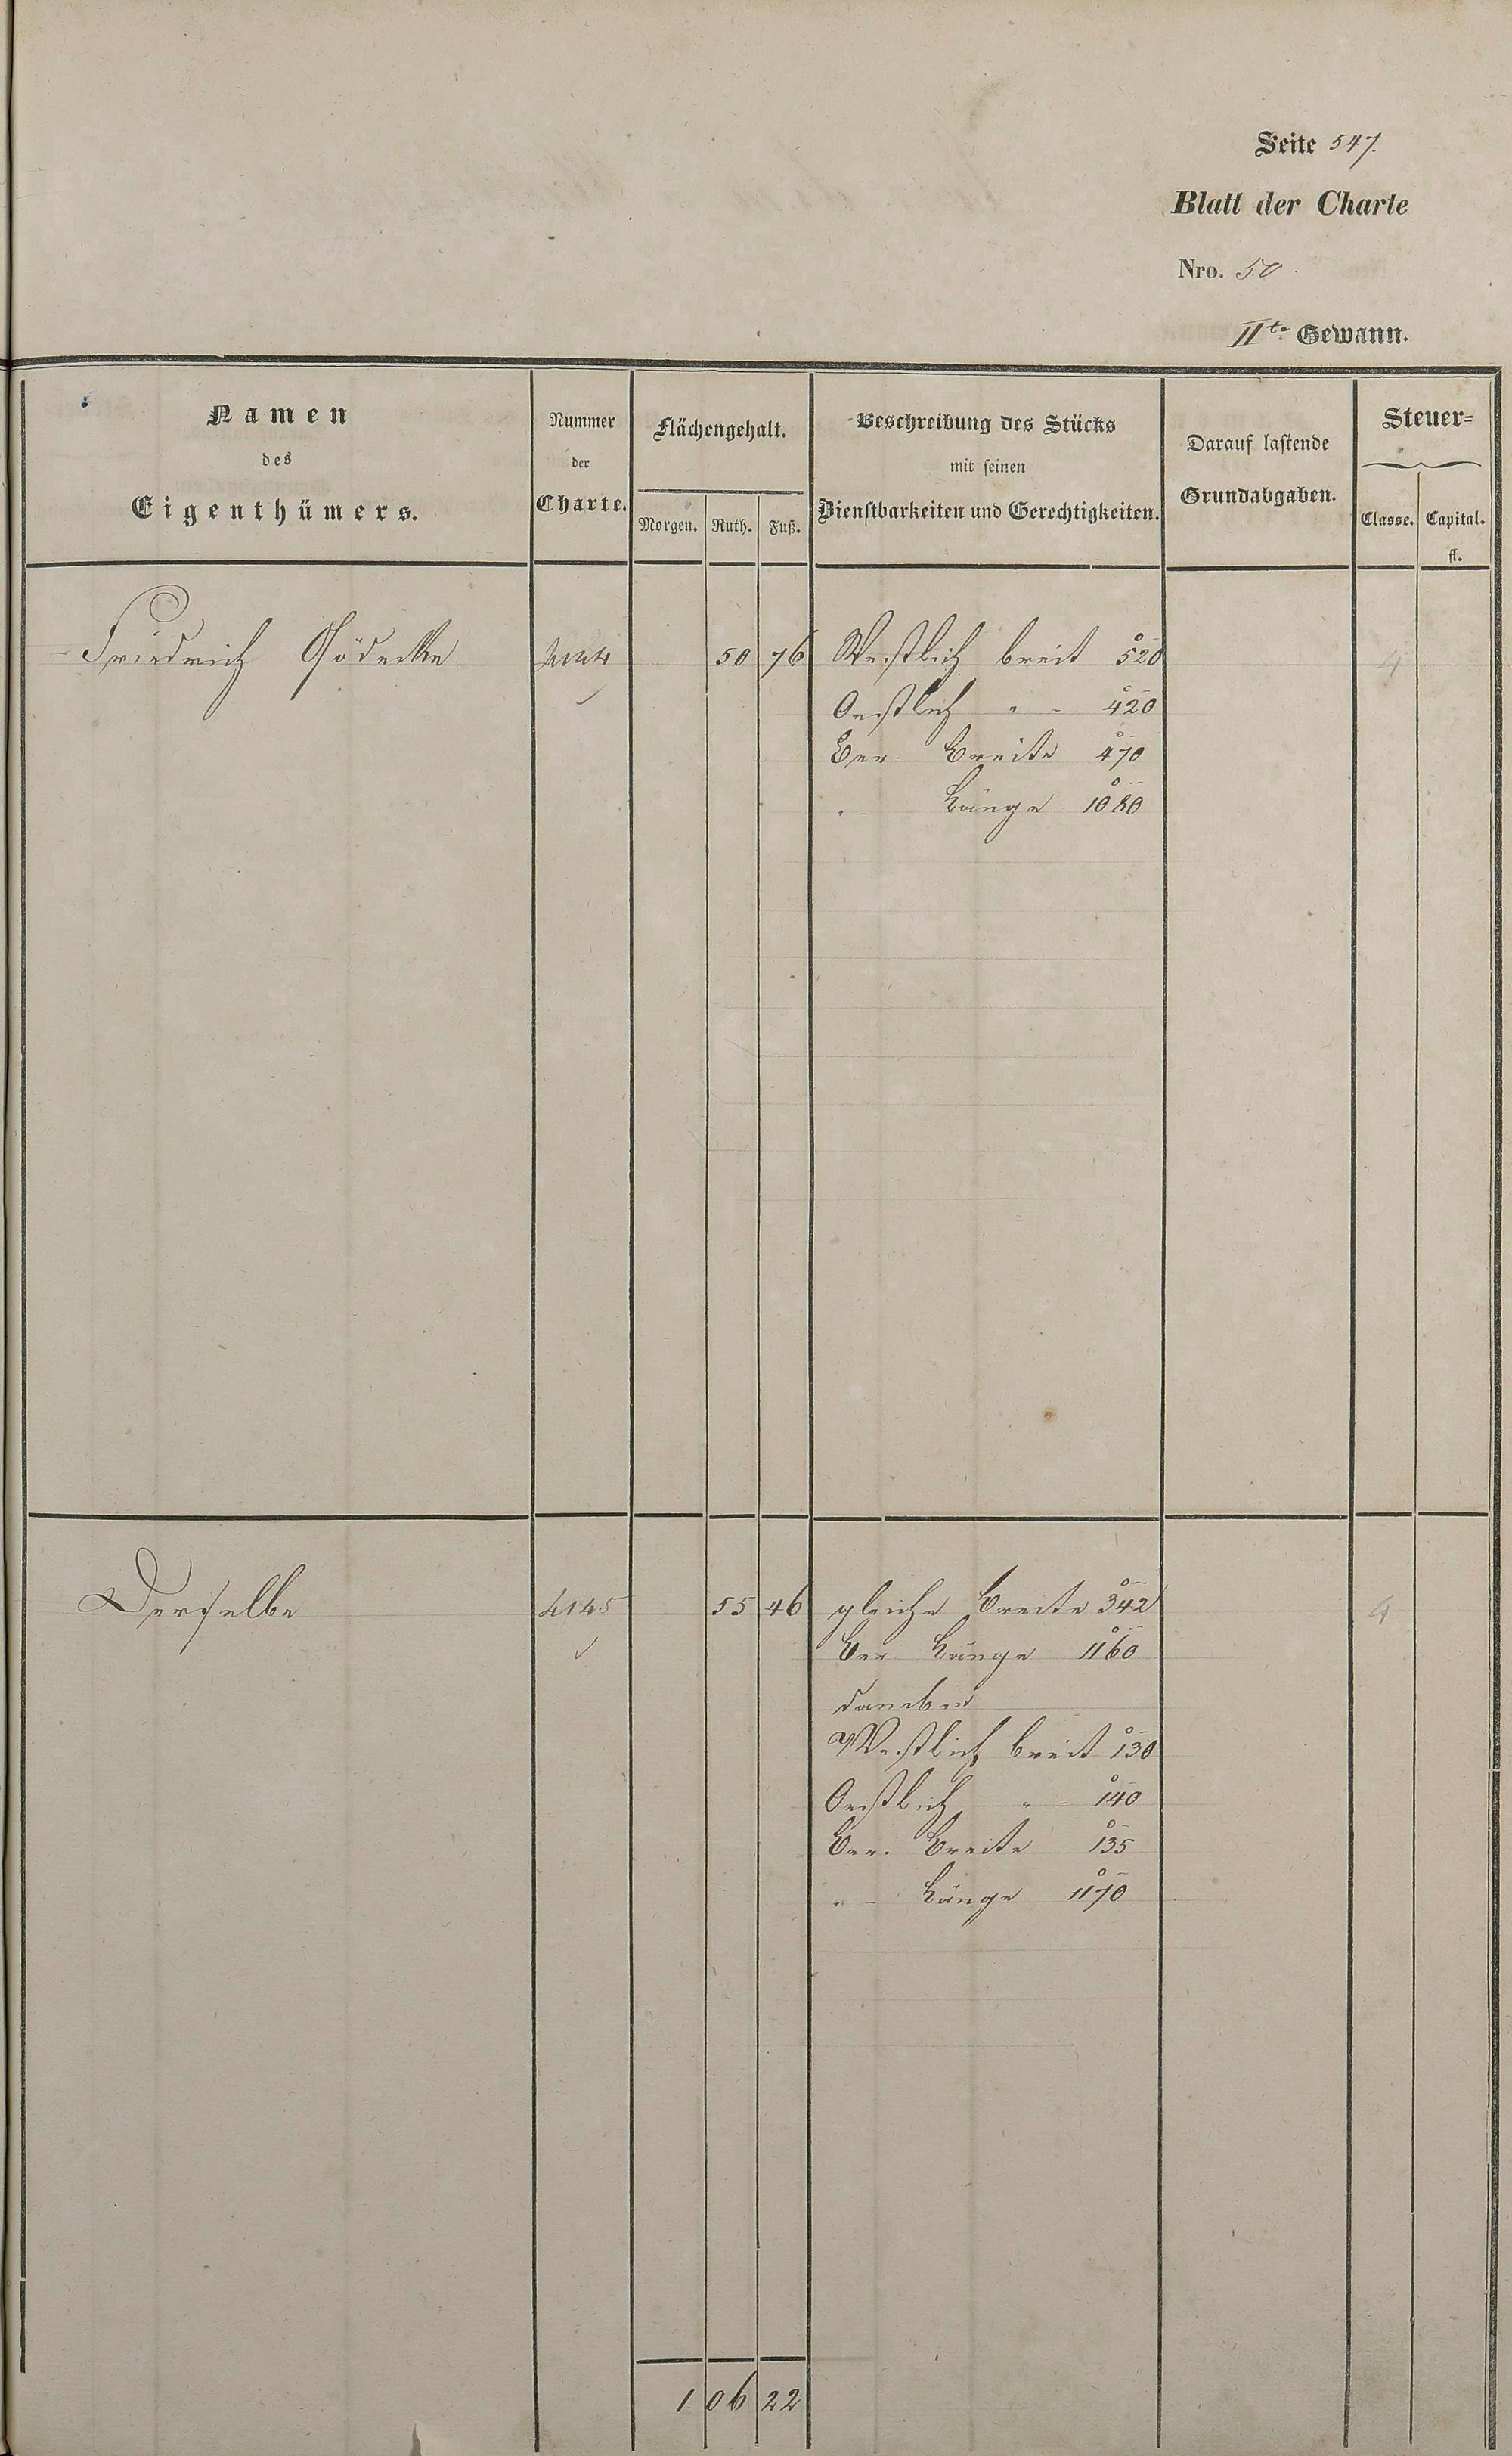 Seite 547.
Blatt der Charte
Nro. 50
IIte Gewann.
Namen
des
Eigenthümers.
Nummer
der
Charte.
Flächengehalt.
Morgen. Ruth. Fuß.
Beschreibung des Stücks
mit seinen
Dienstbarkeiten und Gerechtigkeiten.
Darauf lastende
Grundabgaben.
Steuer-
Classe. Capital.
fl.
Friedrich Gödecke 4144 50 76 Westlich breit 520 4
Oestlich " - 420
Ver. Breite 470
" - Länge 1080
Derselbe 4145 55 46 gleiche Breite 342 4
Ver. Länge 1160
daneben
Westlich breit 130
Oestlich " - 140
Ver. Breite 135
" - Länge 1170
1 06 22